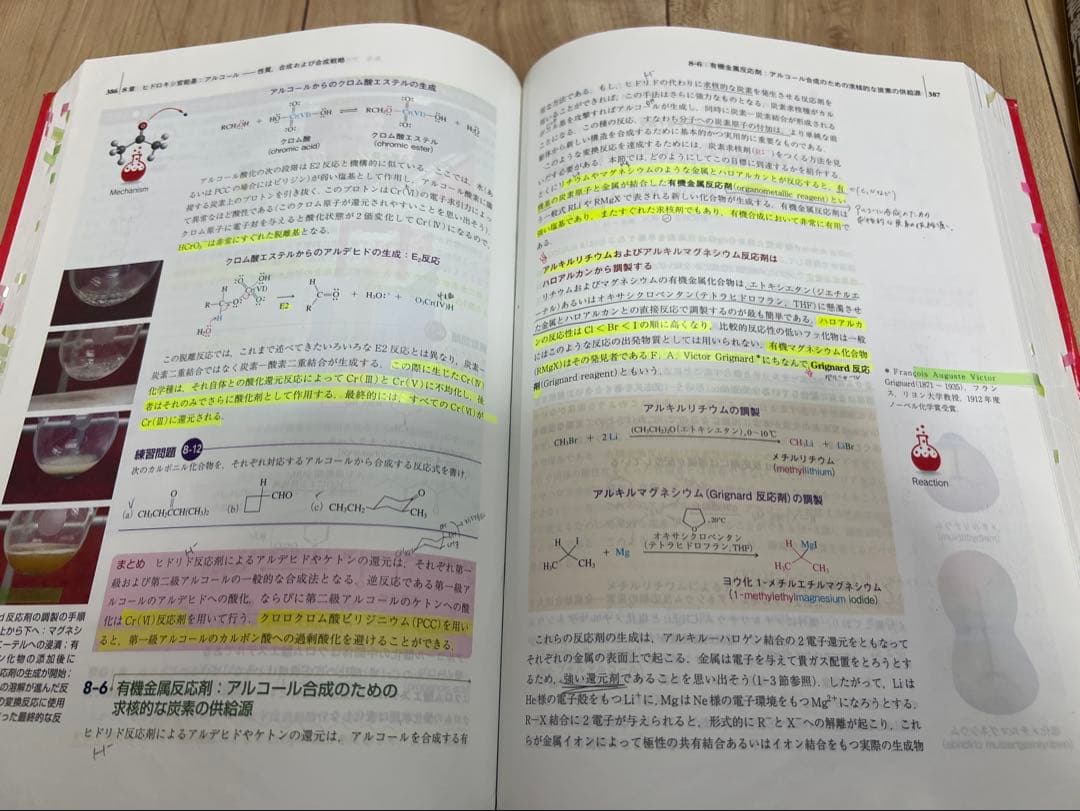 386
8章 ヒドロキシ官能基:アルコール——性質,合成および合成戦略
アルコールからのクロム酸エステルの生成
クロム酸
(chromic acid)
クロム酸エステル
(chromic ester)
Mechanism
アルコール酸化の次の段階はE2反応と機構的に似ている.ここでは,水(あ
るいはPCCの場合にはピリジン)が弱い塩基として作用し,アルコール酸素に隣
接する炭素上のプロトンを引き抜く.このプロトンはCr(VI)の電子求引力によっ
て異常なほど酸性である(このクロム原子が還元されやすいことを思い出そう).
クロム原子に電子対を与えると酸化状態が2価変化してCr(IV)になるので,
HCrO₃⁻は非常にすぐれた脱離基となる.
クロム酸エステルからのアルデヒドの生成:E2反応
E2
+ H₃O:⁺ + O₃Cr(IV)H
この脱離反応では,これまで述べてきたいろいろなE2反応とは異なり,炭素—
炭素二重結合ではなく炭素—酸素二重結合が生成する.この際に生じたCr(IV)
化学種は,それ自体との酸化還元反応によってCr(III)とCr(V)に不均化し,後
者はそれのみでさらに酸化剤として作用する.最終的には,すべてのCr(VI)が
Cr(III)に還元される.
練習問題 8-12
次のカルボニル化合物を,それぞれ対応するアルコールから合成する反応式を書け.
(a) CH₃CH₂CCH(CH₃)₂
O
(b)
H
CHO
(c) CH₃CH₂
O
CH₃
まとめ ヒドリド反応剤によるアルデヒドやケトンの還元は,それぞれ第一
級および第二級アルコールの一般的な合成法となる.逆反応である第一級ア
ルコールのアルデヒドへの酸化,ならびに第二級アルコールのケトンへの酸
化はCr(VI)反応剤を用いて行う.クロロクロム酸ピリジニウム(PCC)を用い
ると,第一級アルコールのカルボン酸への過剰酸化を避けることができる.
d 反応剤の調製の手順
上から下へ:マグネシ
ーテルへの浸漬;有
ン化物の添加後に
応剤の生成が開始;
の溶解が進んだ反
の変換反応に使用
った最終的な反
8-6 有機金属反応剤:アルコール合成のための
求核的な炭素の供給源
ヒドリド反応剤によるアルデヒドやケトンの還元は,アルコールを合成する有
H⁻
8-6:有機金属反応剤:アルコール合成のための求核的な炭素の供給源 387
用な方法である.もし,ヒドリドの代わりに求核的な炭素を発生させる反応剤を
用いることができれば,この手法はさらに強力なものとなる.炭素求核種がカル
ボニル基を攻撃すればアルコールが生成し,同時に炭素—炭素結合が形成される
ことになる.この種の反応,すなわち分子への炭素原子の付加は,より単純な前
駆体から新しい構造を合成するために基本的かつ実用的に重要なものである.
このような変換反応を達成するためには,炭素求核剤(R:⁻)をつくる方法を見
いだす必要がある.本節では,どのようにしてこの目標に到達するかを紹介する.
とくにリチウムやマグネシウムのような金属とハロアルカンとが反応すると,有
機の炭素原子と金属が結合した有機金属反応剤(organometallic reagent)とい
う一般式RLiやRMgXで表される新しい化合物が生成する.有機金属反応剤は
強い塩基であり,またすぐれた求核剤でもあり,有機合成において非常に有用で
ある.
アルキルリチウムおよびアルキルマグネシウム反応剤は
ハロアルカンから調製する
リチウムおよびマグネシウムの有機金属化合物は,エトキシエタン(ジエチルエ
ーテル)あるいはオキサシクロペンタン(テトラヒドロフラン,THF)に懸濁させ
た金属とハロアルカンとの直接反応で調製するのが最も簡単である.ハロアルカ
ンの反応性はCl<Br<Iの順に高くなり,比較的反応性の低いフッ化物は一般
にはこのような反応の出発物質としては用いられない.有機マグネシウム化合物
(RMgX)はその発見者であるF. A. Victor Grignard*にちなんでGrignard反応
剤(Grignard reagent)ともいう.
* François Auguste Victor
Grignard(1871~1935),フラン
ス,リヨン大学教授,1912年度
ノーベル化学賞受賞.
アルキルリチウムの調製
CH₃Br + 2 Li (CH₃CH₂)₂O(エトキシエタン),0~10℃ CH₃Li + LiBr
メチルリチウム
(methyllithium)
Reaction
アルキルマグネシウム(Grignard 反応剤)の調製
O ,20℃
オキサシクロペンタン
(テトラヒドロフラン,THF)
H I
H₃C CH₃
+ Mg
H MgI
H₃C CH₃
ヨウ化 1-メチルエチルマグネシウム
(1-methylethylmagnesium iodide)
これらの反応剤の生成は,アルキル—ハロゲン結合の2電子還元をともなって
それぞれの金属の表面上で起こる.金属は電子を与えて貴ガス配置をとろうとす
るため,強い還元剤であることを思い出そう(1-3節参照).したがって,Liは
He様の電子殻をもつLi⁺に,MgはNe様の電子環境をもつMg²⁺になろうとする.
R—X結合に2電子が与えられると,形式的にR⁻とX⁻への解離が起こり,これ
らが金属イオンによって極性の共有結合あるいはイオン結合をもつ実際の生成物